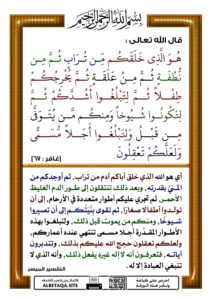 بسم الله الرحمن الرحيم
قال الله تعالى :
هُوَ الَّذِي خَلَقَكُم مِّن تُرَابٍ ثُمَّ مِن
نُّطْفَةٍ ثُمَّ مِنْ عَلَقَةٍ ثُمَّ يُخْرِجُكُمْ
طِفْلًا ثُمَّ لِتَبْلُغُوا أَشُدَّكُمْ ثُمَّ
لِتَكُونُوا شُيُوخًا وَمِنكُم مَّن يُتَوَفَّى
مِن قَبْلُ وَلِتَبْلُغُوا أَجَلًا مُّسَمًّى
وَلَعَلَّكُمْ تَعْقِلُونَ
[غافر : ٦٧]
أي هو الله الذي خلق أباكم آدم من تراب، ثم أوجدكم من
المنيّ بقدرته، وبعد ذلك تنتقلون إلى طور الدم الغليظ
الأحمر، ثم تجري عليكم أطوار متعددة في الأرحام، إلى أن
تولدوا أطفالا صغارا، ثم تقوى بنيتكم إلى أن تصيروا
شيوخا، ومنكم من يموت قبل ذلك، ولتبلغوا بهذه
الأطوار المقدّرة أجلا مسمى تنتهي عنده أعماركم،
ولعلكم تعقلون حجج الله عليكم بذلك، وتتدبرون
آياته، فتعرفون أنه لا إله غيره يفعل ذلك، وأنه الذي لا
تنبغي العبادة إلا له.
التفسير الميسر
ALBETAQA.SITE